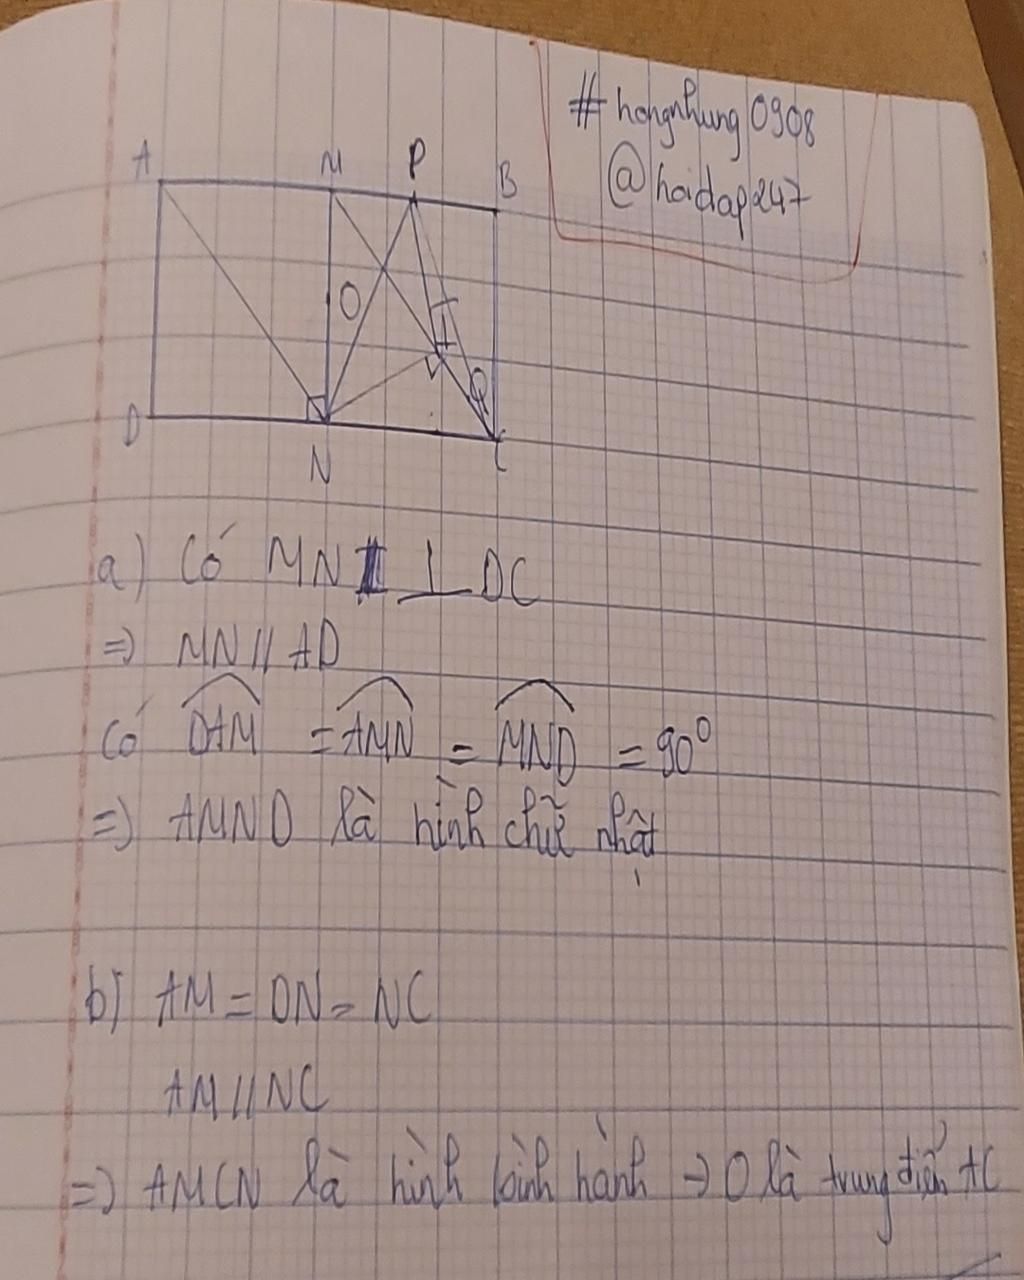 #hongnhung0908
@hoidap247
A M P B
O
H
Q
D N C
a) Có MN ⊥ DC
=> MN // AD
Có DAM = AMN = MND = 90°
=> AMND là hình chữ nhật
b) AM = DN = NC
AM // NC
=> AMCN là hình bình hành -> O là trung điểm AC